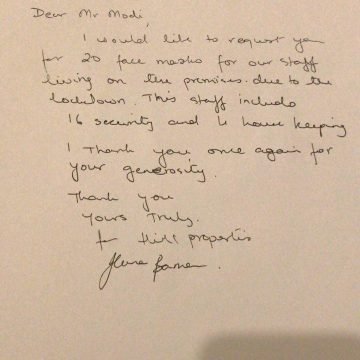 Dear Mr Modi,
I would like to request you
for 20 face masks for our staff
living on the premises. due to the
lockdown. This staff include
16 security and 4 house keeping
I Thank you once again for
your generosity.
Thank you
Yours Truly.
for properties